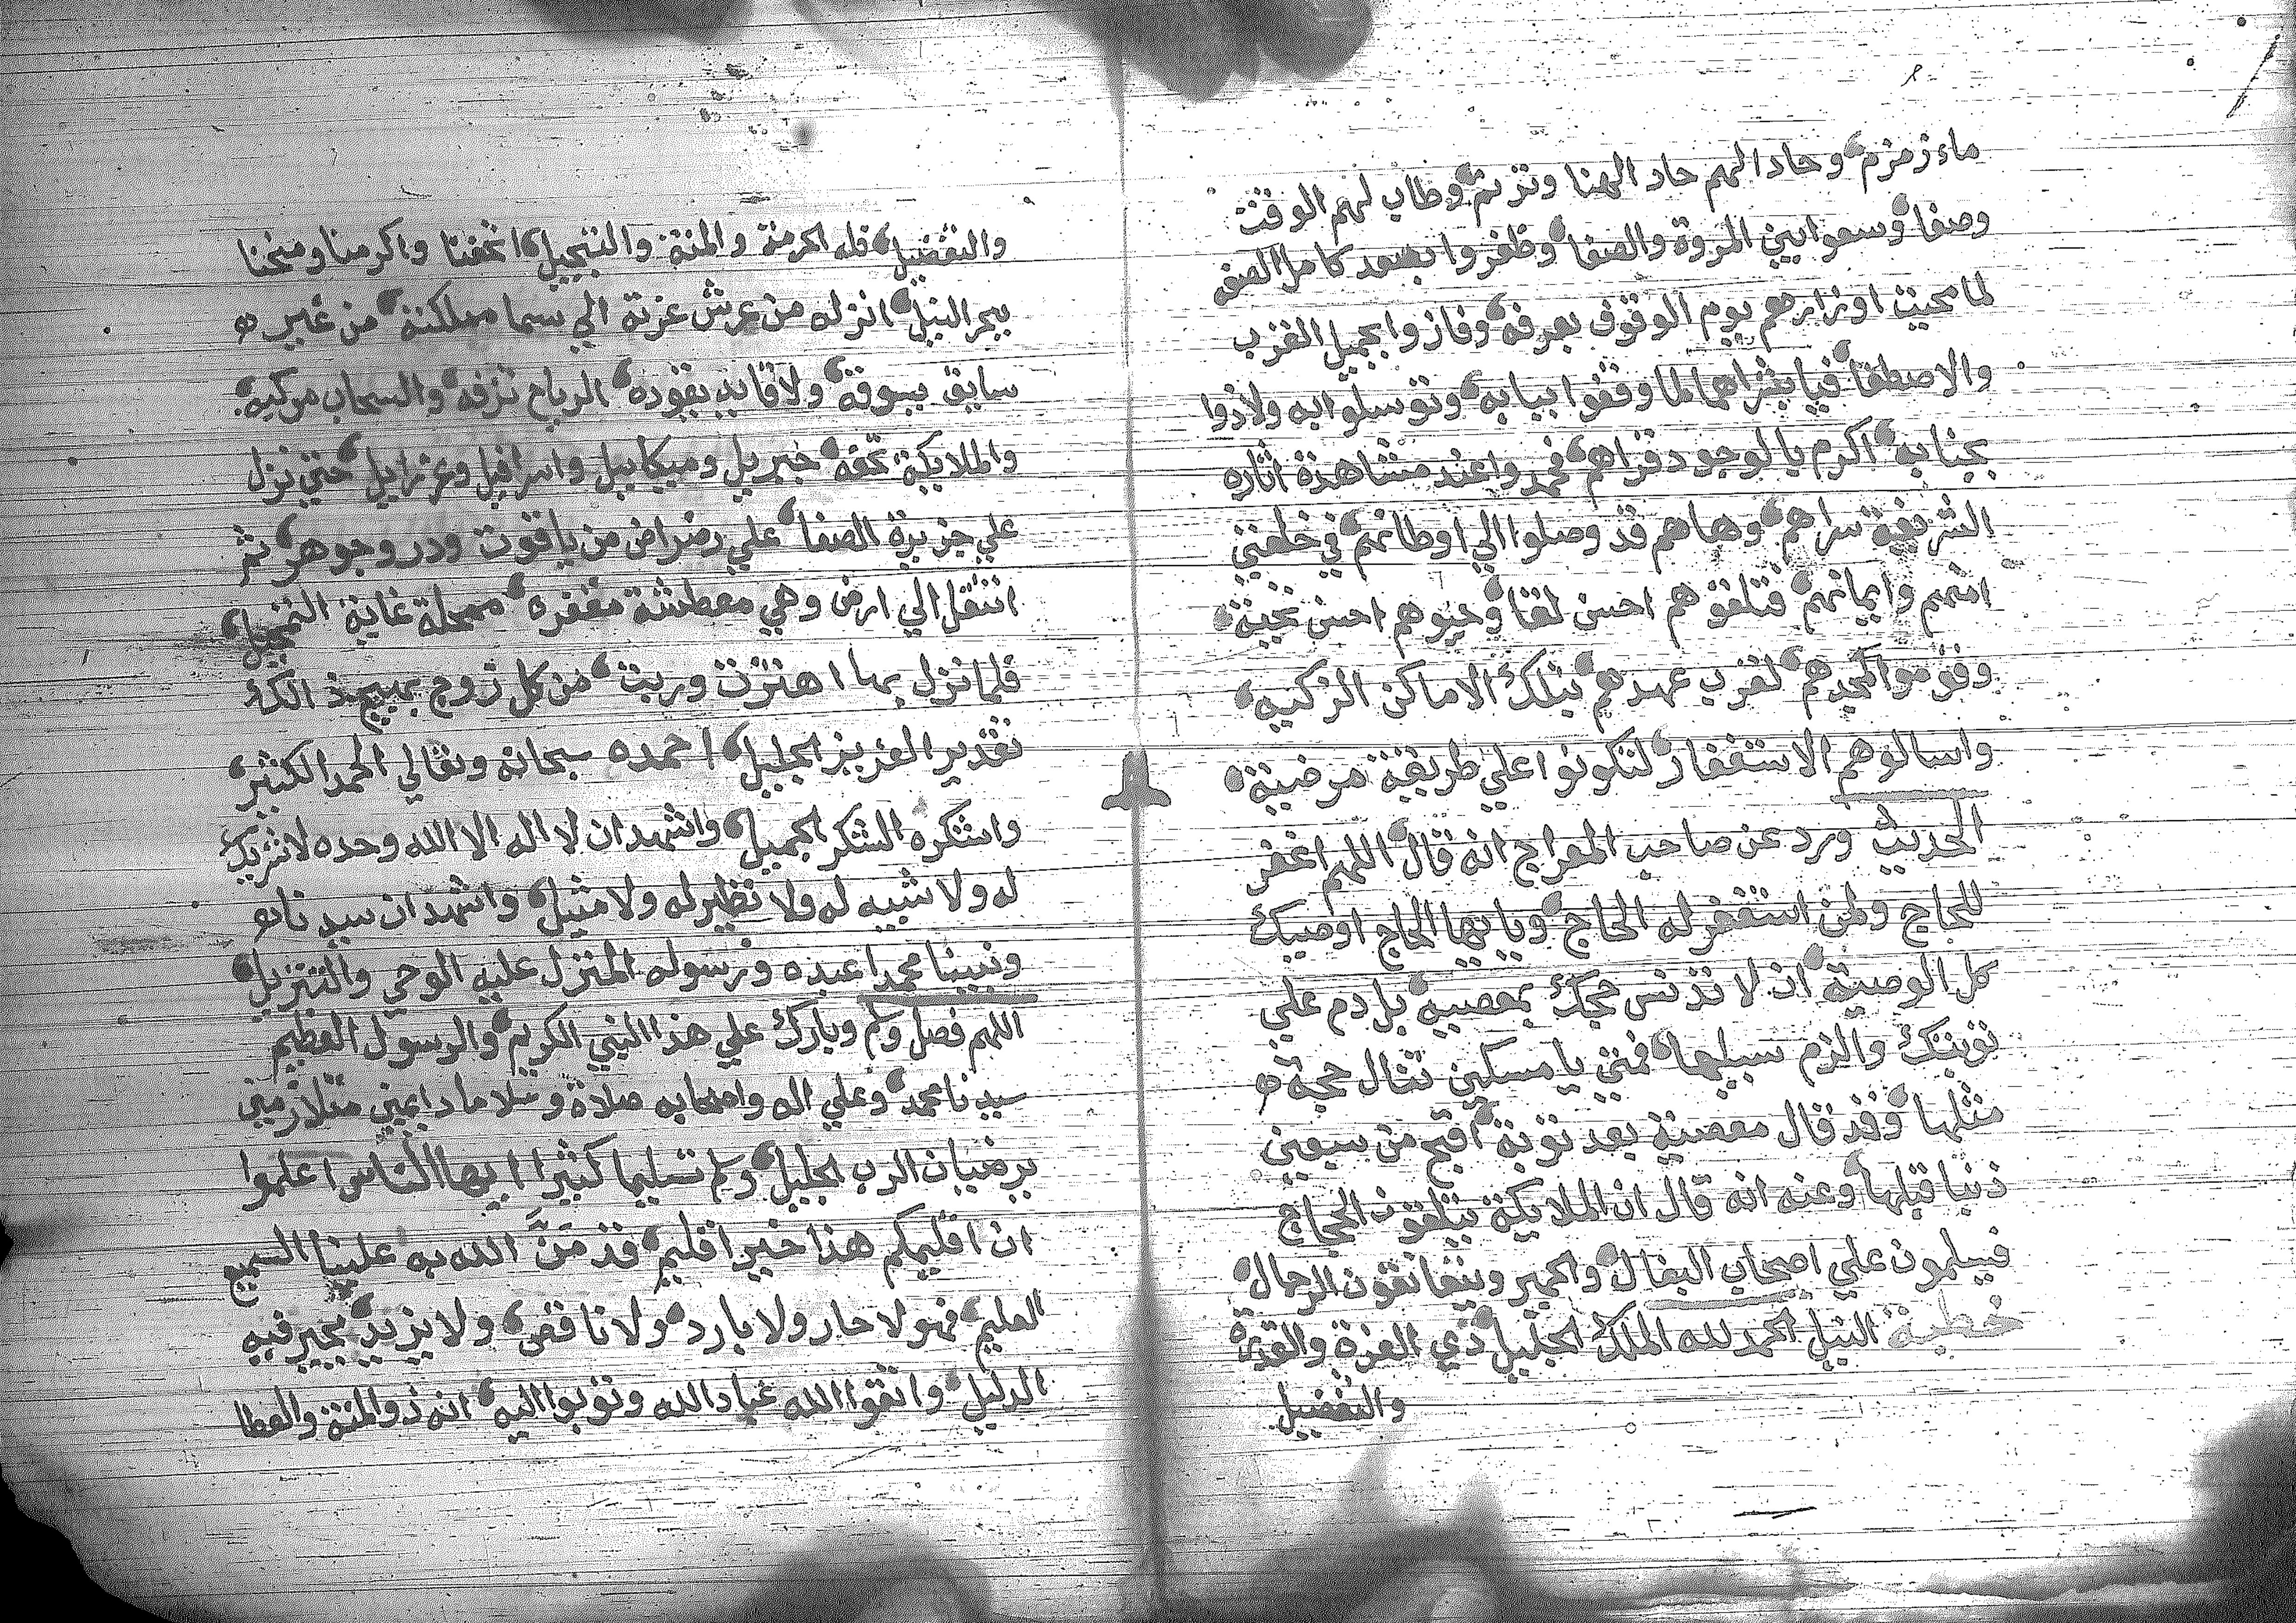 ماء زمزم، وحادا لهم حاد الهنا وترنم، وطاب لهم الوقت
وصفا، وسعوا بين المروة والصفا، وظفروا بصعد كامل الصفه
لما محيت اوزارهم يوم الوقوف بعرفه، وفازوا بجميل القرب
والاصطفا، فيا بشراهم لما وقفوا ببابه، وتوسلوا به ولاذوا
بجنابه، اكرم بالوجود قراهم، فحمدوا عند مشاهدة اثاره
الشريفة سراهم، وها هم قد وصلوا الي اوطانهم، في خلعتي
امنهم وايمانهم، فتلقوهم احسن لقا، وحيوهم احسن تحية،
وقوموا لمجدهم، لقرب عهدهم، بتلك الاماكن الزكيه،
واسالوهم الاستغفار، لتكونوا علي طريقة مرضية،
الحديث ورد عن صاحب المعراج انه قال، اللهم اغفر
للحاج ولمن استغفر له الحاج، ويا ايها الحاج اوصيك
كل الوصية، ان لا تدنس حجك بمعصيه، بل دم علي
توبتك والزم سبيلها، فمتي يا مسكين تنال حجة
مثلها، وقد قال معصية بعد توبة، اقبح من سبعين
ذنبا قبلها، وعنه انه قال ان الملايكة يتلقون الحجاج
فيسلمون علي اصحاب البغال، والحمير ويتعانقون الرجال،
خطبة النيل الحمد لله الملك الجليل، ذي العزة والقدرة
والتفضيل
والتفضيل، فله الحرمة والمنة والتبجيل، اتحفنا واكرمنا ومنحنا
ببحر النيل، انزله من عرش عزته الي سما مملكته، من غير
سايق يسوقه، ولا قايد يقوده، الرياح تزفه، والسحاب مركبه،
والملايكة تحفه، جبريل وميكاييل واسرافيل وعزرايل، حتي نزل
علي جزيرة الصفا، علي رضراض من ياقوت ودر وجوهر، ثم
انتقل الي ارض وهي معطشة مقفره، ممحلة غاية التمحيل،
فلما نزل بها اهتزت وربت، من كل زوج بهيج، ذالك
تقدير العزيز الجليل، احمده سبحانه وتعالي الحمد الكثير،
واشكره الشكر الجميل، واشهد ان لا اله الا الله وحده لا شريك
له ولا شبيه له ولا نظير له ولا مثيل، واشهد ان سيدنا
ونبينا محمدا عبده ورسوله المنزل عليه الوحي والتنزيل،
اللهم فصل وسلم وبارك علي هذا النبي الكريم، والرسول العظيم
سيدنا محمد، وعلي اله واصحابه صلاة وسلاما دايمين متلازمين
برضيان الرب الجليل، وسلم تسليما كثيرا ايها الناس اعلموا
ان اقليمكم هذا خير اقليم، قد مَنَّ الله به علينا السميع
العليم، فهو لا حار ولا بارد، ولا ناقص، ولا يزيد، يحير فيه
الدليل، واتقوا الله عباد الله وتوبوا اليه، انه ذو المنة والعطا